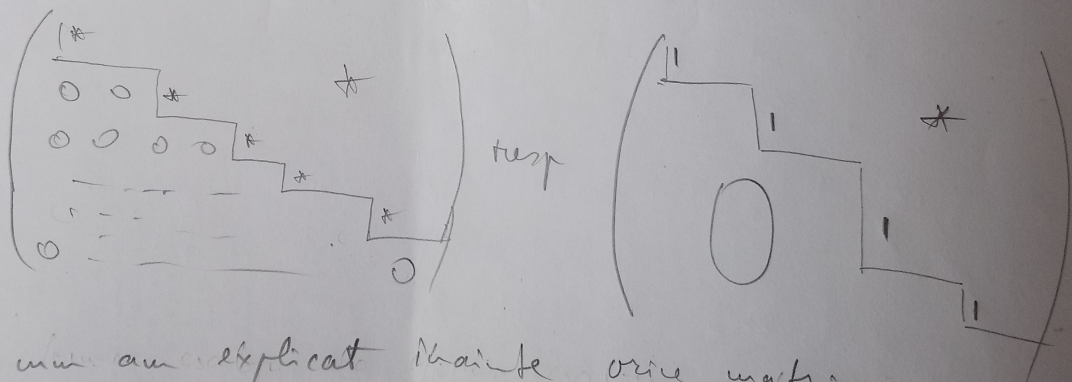 | * * 
0 0 *
0 0 0 0 *
*
*
0 0
resp
1
1 *
0
1
1
am explicat inainte orice